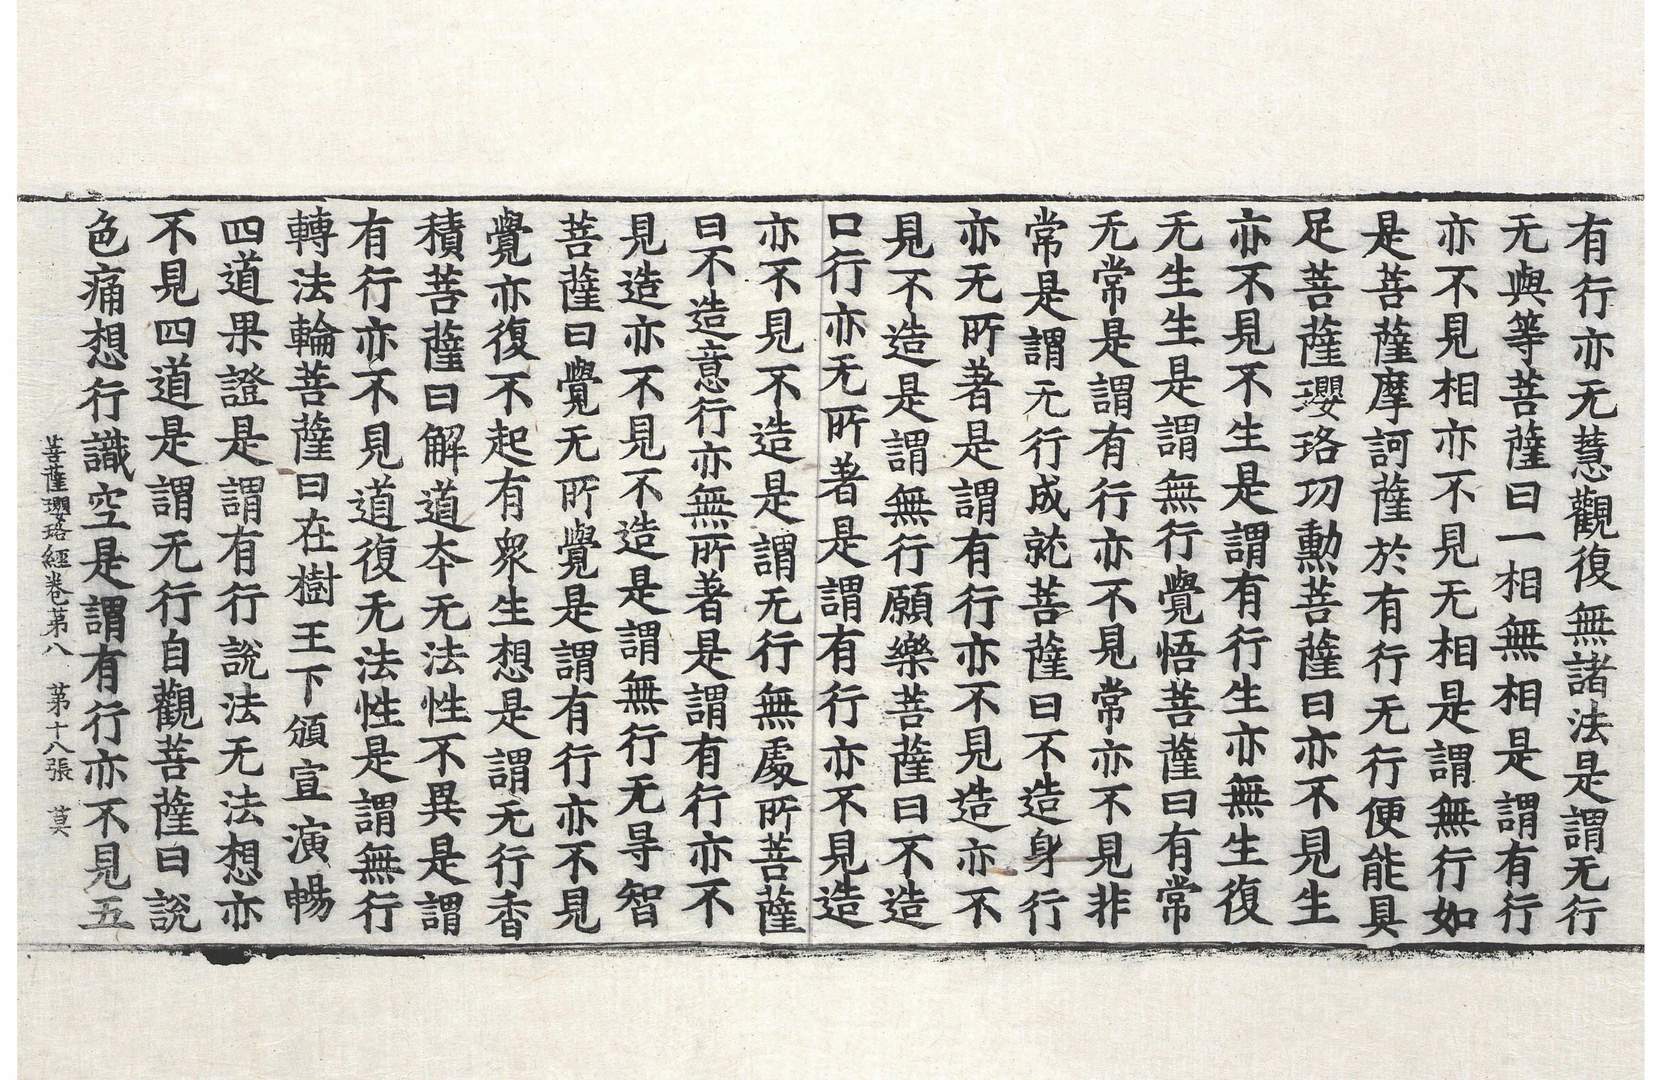 有行亦无慧觀復無諸法是謂无行
无與等菩薩曰一相無相是謂有行
亦不見相亦不見无相是謂無行如
是菩薩摩訶薩於有行无行便能具
足菩薩瓔珞㓛勳菩薩曰亦不見生
亦不見不生是謂有行生亦無生復
无生生是謂無行覺悟菩薩曰有常
无常是謂有行亦不見常亦不見非
常是謂无行成就菩薩曰不造身行
亦无所著是謂有行亦不見造亦不
見不造是謂無行願樂菩薩曰不造
口行亦无所著是謂有行亦不見造
亦不見不造是謂无行無處所菩薩
曰不造意行亦無所著是謂有行亦不
見造亦不見不造是謂無行无㝵智
菩薩曰覺无所覺是謂有行亦不見
覺亦復不起有衆生想是謂无行香
積菩薩曰解道夲无法性不異是謂
有行亦不見道復无法性是謂無行
轉法輪菩薩曰在樹王下頒宣演暢
四道果證是謂有行說法无法想亦
不見四道是謂无行自觀菩薩曰說
色痛想行識空是謂有行亦不見五
菩薩瓔珞經卷苐八 苐十八張 莫